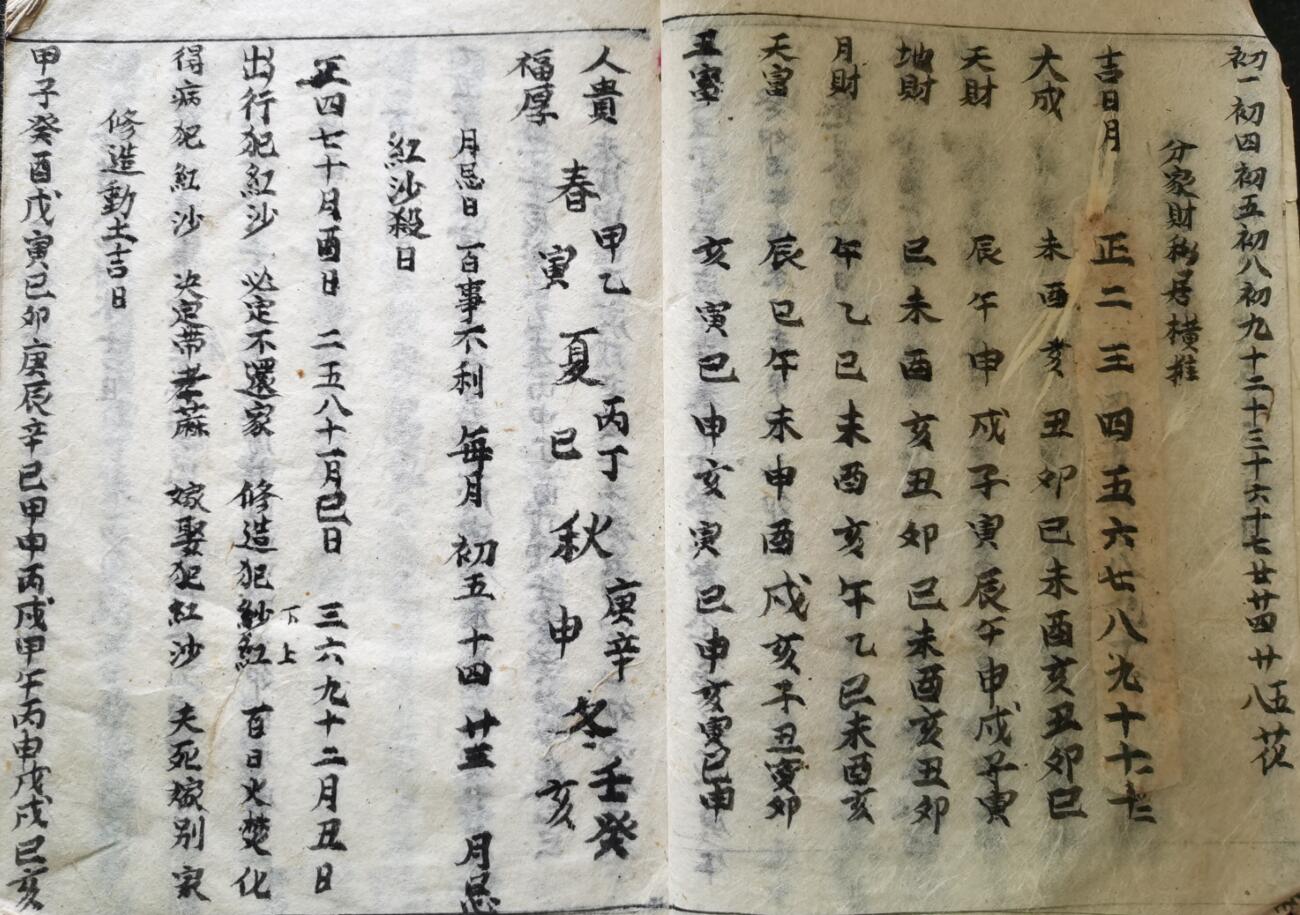 初一初四初五初八初九十二十三十六十七廿廿四廿五八
分家財移居橫推
吉日月 正二三四五六七八九十十一十二
大成 未酉亥丑卯巳未酉亥丑卯巳
天財 辰午申戌子寅辰午申戌子寅
地財 巳未酉亥丑卯巳未酉亥丑卯
月財 午乙巳未酉亥午乙巳未酉亥
天富 辰巳午未申酉戌亥子丑寅卯
亥寅巳申亥寅巳申亥寅巳申
人貴 甲乙 丙丁 庚辛 壬癸
福厚 春寅 夏巳 秋申 冬亥
月忌日 百事不利 每月 初五 十四 廿三 月忌
紅沙殺日
正四七十月酉日 二五八十一月巳日 三六九十二月丑日
出行犯紅沙 必定不還家 修造犯紗紅 下上 百日火焚化
得病犯紅沙 决定帶孝蔴 嫁娶犯紅沙 夫死嫁別家
修造動土吉日
甲子癸酉戊寅己卯庚辰辛巳甲申丙戌甲午丙申戊戌己亥